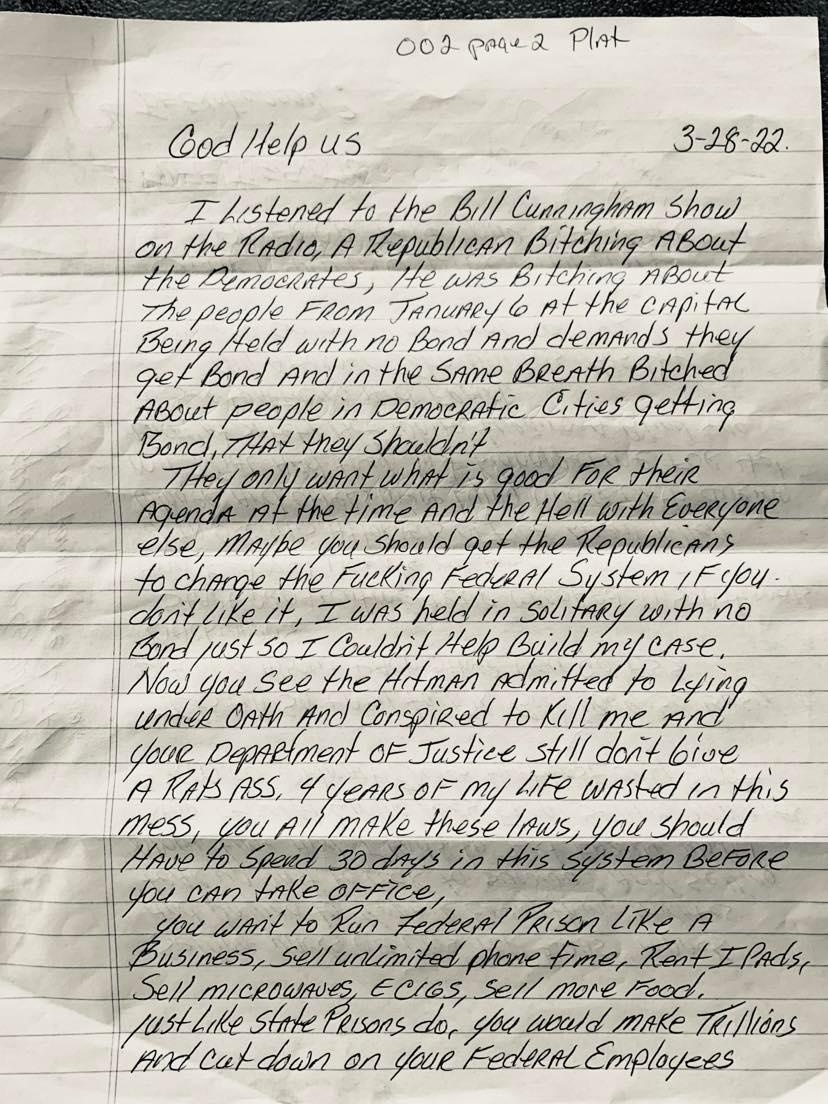 002 page 2 Plat
God Help us 3-28-22.
I Listened to the Bill Cunningham Show
on the Radio, A Republican Bitching About
the Democrates, He was Bitching About
The people From January 6 At the Capital
Being Held with no Bond And demands they
get Bond And in the Same Breath Bitched
About people in Democratic Cities getting
Bond, That they Shouldn't
They only want what is good For their
Agenda At the time And the Hell with Everyone
else, Maybe you Should get the Republicans
to change the Fucking Federal System if you.
don't like it, I was held in Solitary with no
Bond just so I Couldn't Help Build my case.
Now you See the Hitman Admitted to Lying
under Oath And Conspired to Kill me And
your Department of Justice still don't Give
A Rats Ass, 4 years of my Life wasted in this
mess, you All make these laws, you should
Have to Spend 30 days in this System Before
you can take office,
you want to Run Federal Prison Like A
Business, Sell unlimited phone time, Rent I Pads,
Sell microwaves, E Cigs, Sell more Food.
Just Like State Prisons do, you would make Trillions
And Cut down on your Federal Employees